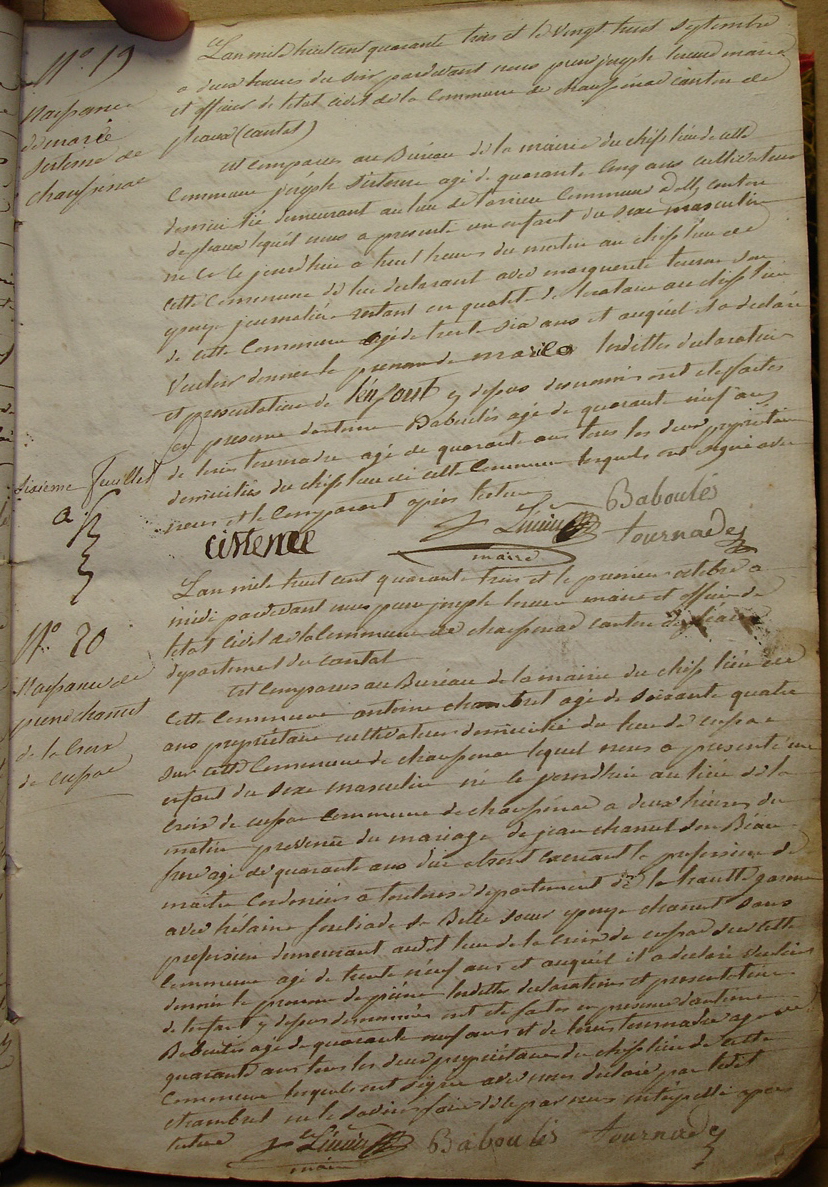 N° 19
Naissance
de marie
Sisterne de
chaussenac
L'an mil huit cent quarante trois et le vingt huit Septembre
a deux heures du soir pardevant nous pierre joseph maire
et officier de letat civil de la Commune de chaussenac canton de
pleaux (cantal)
est Comparu au Bureau de la mairie du chef lieu de cette
Commune joseph Sisterne agé de quarante Cinq ans cultivateur
demeurant au lieu de Commune d'ally canton
de pleaux lequel nous a presenté un enfant du Sexe masculin
né Ce jourdhui a huit heures du matin au chef lieu de
cette Commune de lui declarant avec marguerite Son
epouse journaliere restant en qualité de locataire au chef lieu
de cette Commune agé de trente Six ans et auquel il a declaré
Vouloir donner le prenom de marie lesdittes declaration
et presentation de l'enfant y dessus denommé ont eté faites
en presence dantoine Baboulès agé de quarante neuf ans
de tournadre agé de quarante ans tous les deux proprietaires
domiciliés du chef lieu de cette Commune lesquels ont Signé avec
nous et le Comparant après lecture
Sixieme feuillet
cisterne
Baboulès
maire
tournadre
N° 20
Naissance de
pierre chanut
de la Croix
de cussac
L'an mil huit cent quarante trois et le premier octobre a
midi pardevant nous pierre joseph maire et officier de
letat Civil de la Commune de chaussenac canton de pleaux
departement du cantal
est Comparu au Bureau de la mairie du chef lieu de
Cette Commune antoine chambret agé de Soixante quatre
ans proprietaire cultivateur domicilié du lieu de cussac
Sur cette Commune de chaussenac lequel nous a presenté un
enfant du Sexe masculin né le jourdhui au lieu de la
Croix de cussac Commune de chaussenac a deux heures du
matin du mariage de jean chanut Son Beau
frere agé de quarante ans absent exercant la profession de
maitre Cordonnier a toulouse departement de la hautte garonne
avec hélaine fouliade Sa Belle Soeur epouse chanut Sans
profession demeurant audit lieu de la croix de cussac Sur cette
Commune agé de trente neuf ans et auquel il a declaré Vouloir
donner le prenom de pierre lesdittes declaration et presentation
de lenfant y dessus denommé ont eté faites en presence dantoine
Baboulès agé de quarante neuf ans et de tournadre agé de
quarante ans tous les deux proprietaire du chef lieu de cette
Commune lesquels ont Signé avec nous declaré par ledit
chambret ne le Savoir faire de par nous interpellé apres
lecture
Baboulès tournadre
maire